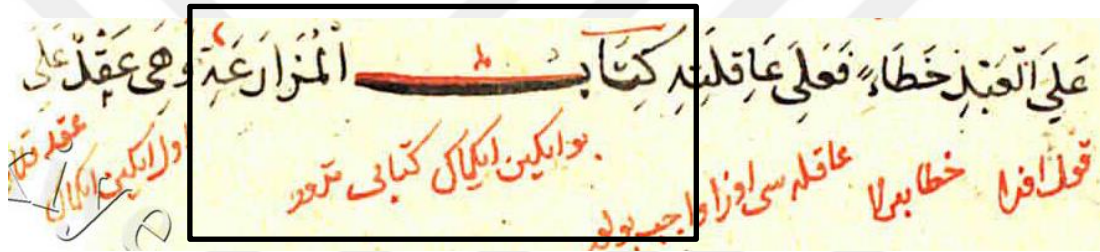 عَلَي الْعَبْدِ خَطَاءً فَعَلَى عَاقِلَتِهِ كِتَابُ الْمُزَارَعَةِ وَهِىَ عَقْدٌ عَلَى
قول اوزرا خطا بيرلا عاقله سى اوزا واجب بولور بو ايكين ايكماك كتابى ترور اول ايكين ايكماك عقد